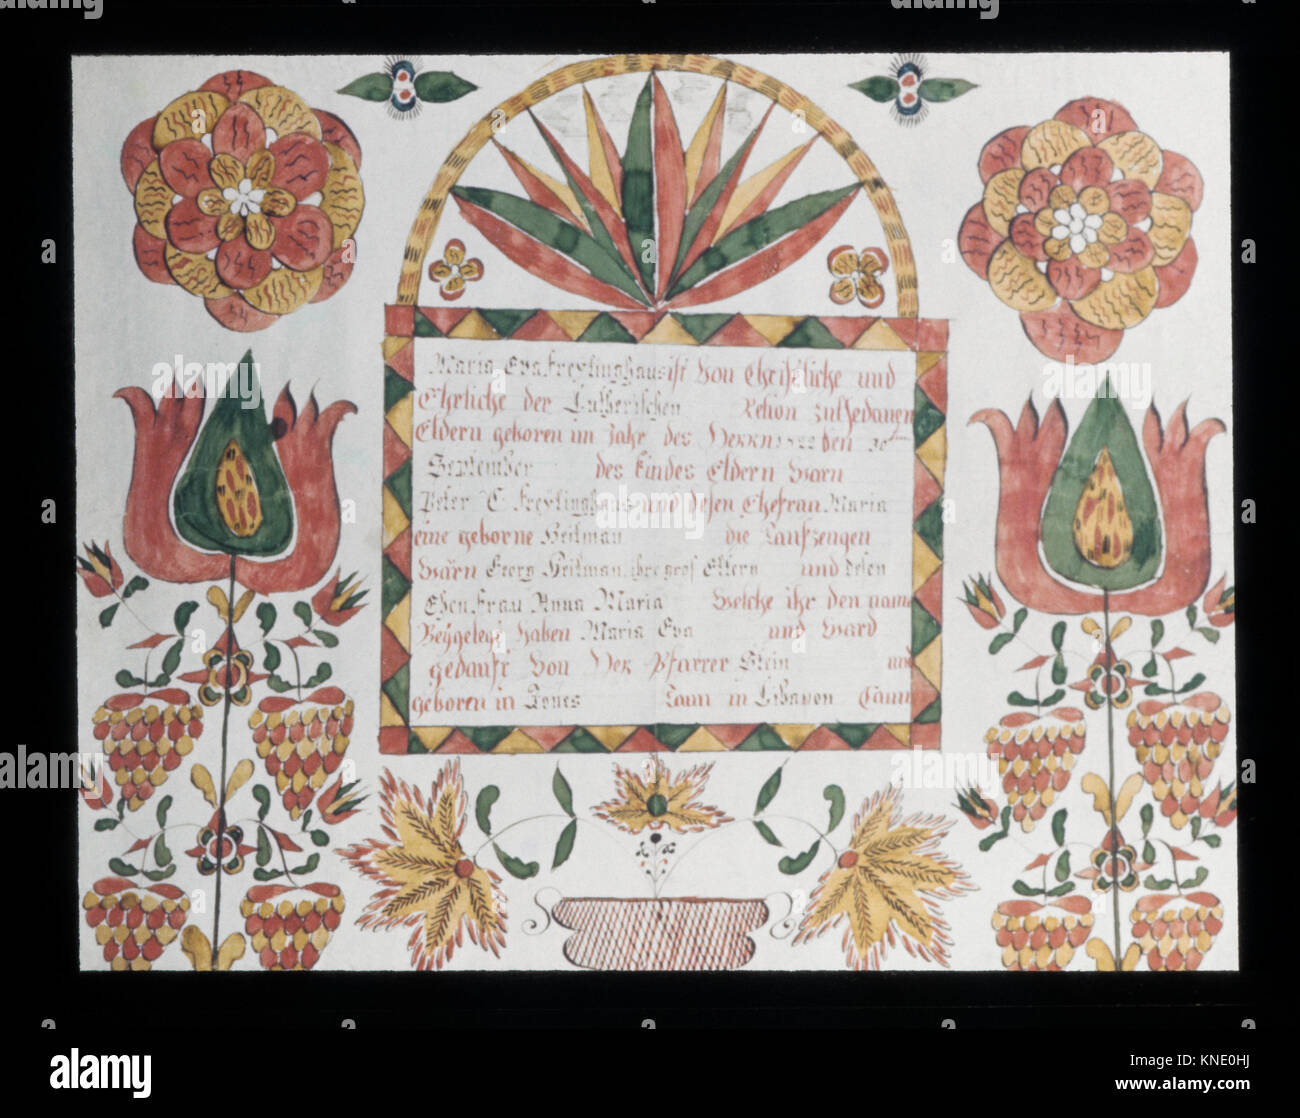 Maria Eva Freylinghaus ist Von Christliche und
Ehrliche der Lutherischen Relion zu
Eldern geboren im Jahr des HERRN 1822 den 30
September des kindes Eldern Waren
Peter C Freylinghaus und desen Ehefrau Maria
eine geborne Heilman die Taufzeugen
Wären Georg Heilman ihre gros Eltern und desen
Ehen Frau Anna Maria Welche ihr den name
Beygelegt haben Maria Eva und Ward
gedauft Von Der Pfarrer Stein und
geboren in Taun in Libanon Caun
alamy
Image ID: KNE0HJ
www.alamy.com